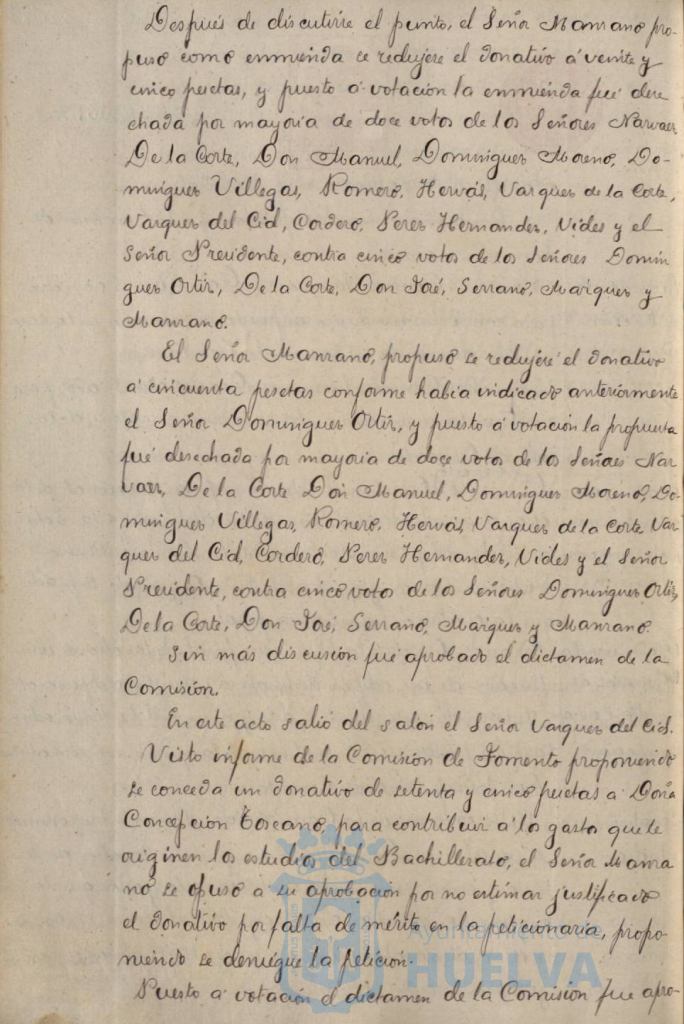 Después de discutirse el punto, el Señor Manzano pro-
puso como enmienda se redujere el donativo á veinte y
cinco pesetas, y puesto á votación la enmienda fué dese
chada por mayoria de doce votos de los Señores Narvaez
De la Corte, Don Manuel, Dominguez Moreno, Do-
minguez Villegas, Romero, Hervás, Vazquez de la Corte,
Vazquez del Cid, Cordero, Perez Hernandez, Vides y el
Señor Presidente, contra cinco votos de los Señores Domin
guez Ortiz, De la Corte, Don José, Serrano, Marquez y
Manzano.
El Señor Manzano, propuso se redujere el donativo
á cincuenta pesetas conforme habia indicado anteriormente
el Señor Dominguez Ortiz, y puesto á votación la propuesta
fué desechada por mayoria de doce votos de los Señores Nar
vaez, De la Corte Don Manuel, Dominguez Moreno, Do-
minguez Villegas, Romero, Hervás, Vazquez de la Corte Vaz
quez del Cid, Cordero, Perez Hernandez, Vides y el Señor
Presidente, contra cinco votos de los Señores Dominguez Ortiz,
De la Corte, Don José, Serrano, Marquez y Manzano.
Sin más discusión fué aprobado el dictamen de la
Comisión.
En este acto salió del salón el Señor Vazquez del Cid.
Visto informe de la Comisión de Fomento proponiendo
se conceda un donativo de setenta y cinco pesetas a Doña
Concepción Toscano, para contribuir á los gastos que le
originen los estudios del Bachillerato, el Señor Manza
no se opuso a su aprobación por no estimar justificado
el donativo por falta de mérito en la peticionaria, propo-
niendo se deniegue la petición.
Puesto á votación el dictamen de la Comisión fue apro-
Ayuntamiento de
HUELVA